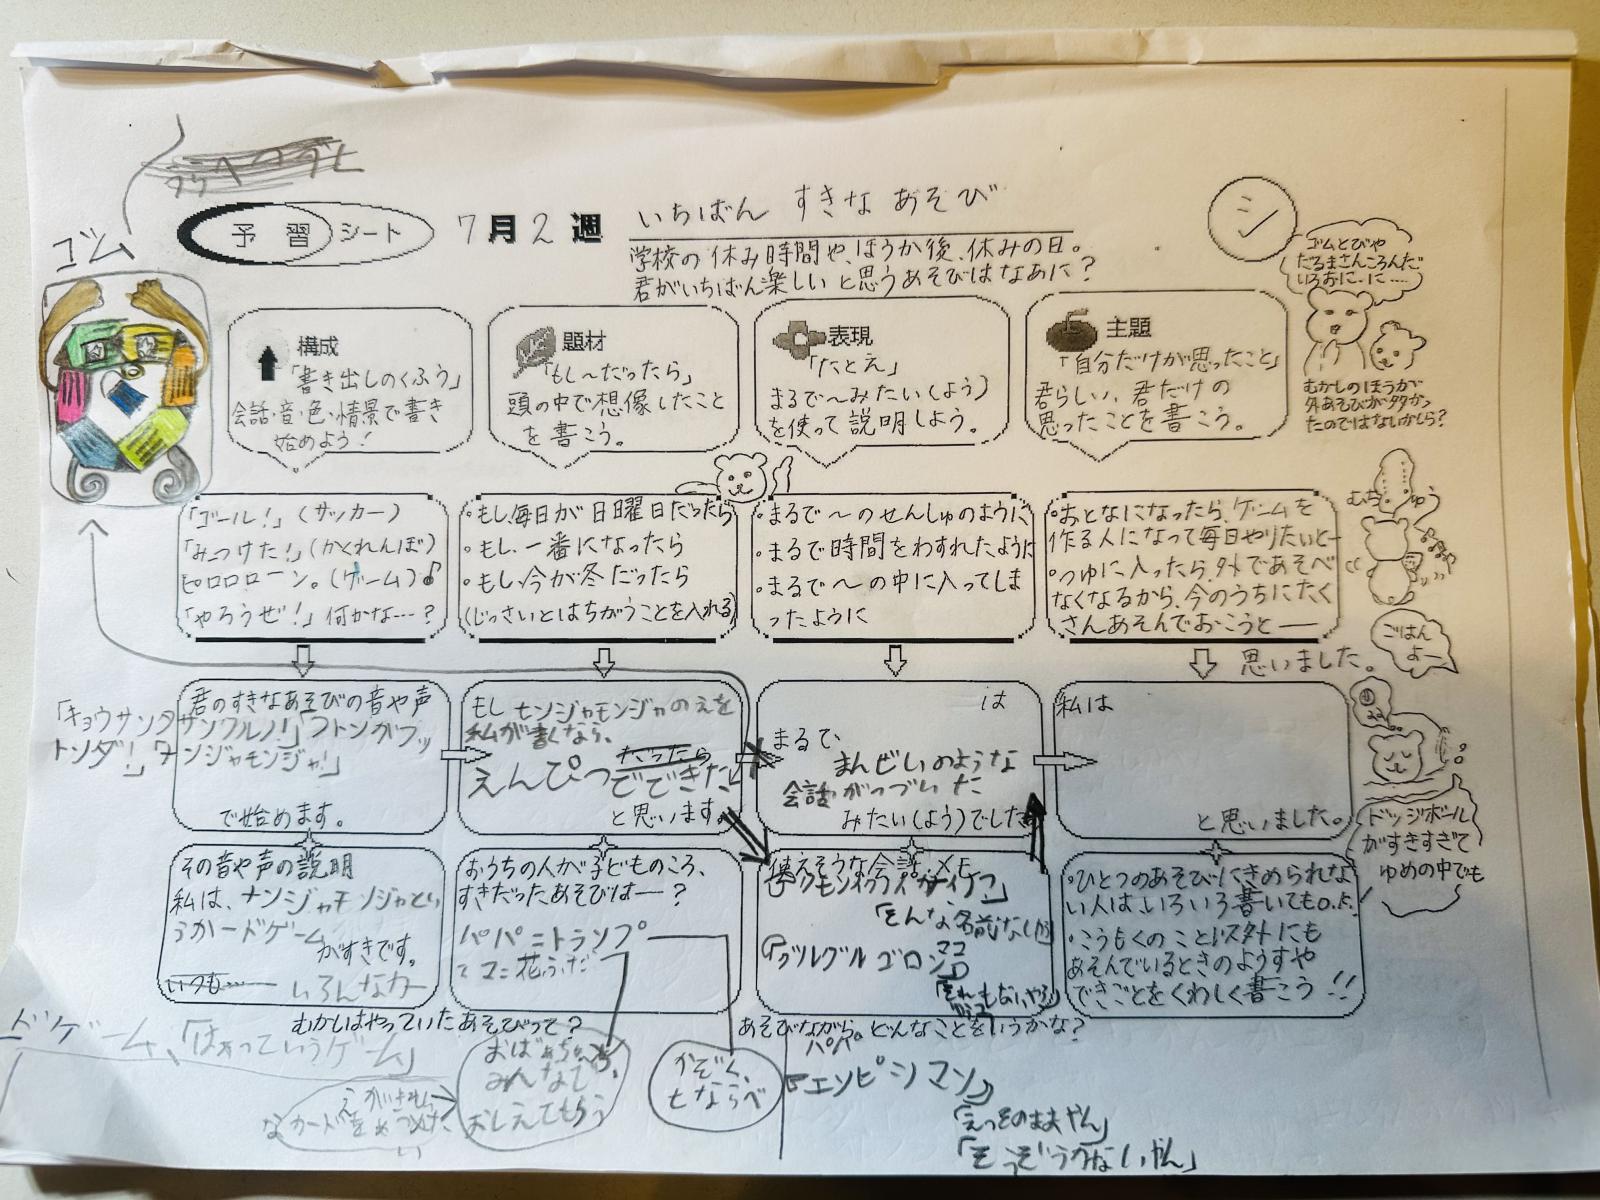 ゴム
予習シート
7月2週
いちばん すきな あそび
学校の休み時間や、ほうか後、休みの日。
君がいちばん楽しいと思うあそびはなあに?
シ
ゴムとびや
だるまさんころんだ
いろおに・に……
むかしのほうが
外あそびが多かっ
たのではないかしら?
構成
「書き出しのくふう」
会話・音・色・情景で書き
始めよう!
題材
「もし〜だったら」
頭の中で想像したこと
を書こう。
表現
「たとえ」
まるで〜みたい(よう)
を使って説明しよう。
主題
「自分だけが思ったこと」
君らしい、君だけの
思ったことを書こう。
「ゴール!」(サッカー)
「みつけた!」(かくれんぼ)
ピロロローン。(ゲーム)♪
「やろうぜ!」何かな…?
・もし、毎日が日曜日だったら
・もし、一番になったら
・もし、今が冬だったら
(じっさいとはちがうことを入れる)
・まるで〜のせんしゅのように
・まるで時間をわすれたように
・まるで〜の中に入ってしま
ったように
・おとなになったら、ゲームを
作る人になって毎日やりたいと―
・つゆに入ったら、外であそべ
なくなるから、今のうちにたく
さんあそんでおこうと――
思いました。
むちゅう
ごはん
よー
君のすきなあそびの音や声
「キョウサンタサンワルノ!」「フトンガフッ
トンダ!」「ナンジャモンジャ!」
で始めます。
もし ナンジャモンジャのえを
私が書くなら、
だったら
えんぴつでできた
と思います。
は
まるで、
まんざいのような
会話がつづいた
みたい(よう)でした
私は
と思いました。
ドッジボール
がすきすぎて
ゆめの中でも
その音や声の説明
私は、ナンジャモンジャとい
うカードゲーム
がすきです。
いつも……
いろんなカー
ドゲーム、「はぁっていうゲーム」
おうちの人が子どものころ、
すきだったあそびは―?
パパ=トランプ
ママ=花ふだ
むかしはやっていたあそびって?
おばあちゃんち
みんなで
おしえてもらう
かぞく、
七ならべ
使えそうな会話メモ
「そんな名前なしやろ」
『グルグルゴロンゴロ
あそびながら。どんなことをいうかな?
パパ
『エンピツマン』
「えっそのままやん」
「そうぞうつかないやん」
・ひとつのあそびにきめられな
い人は、いろいろ書いてもO.K.
・こうもくのこと以外にも
あそんでいるときのようすや
できごとをくわしく書こう!!